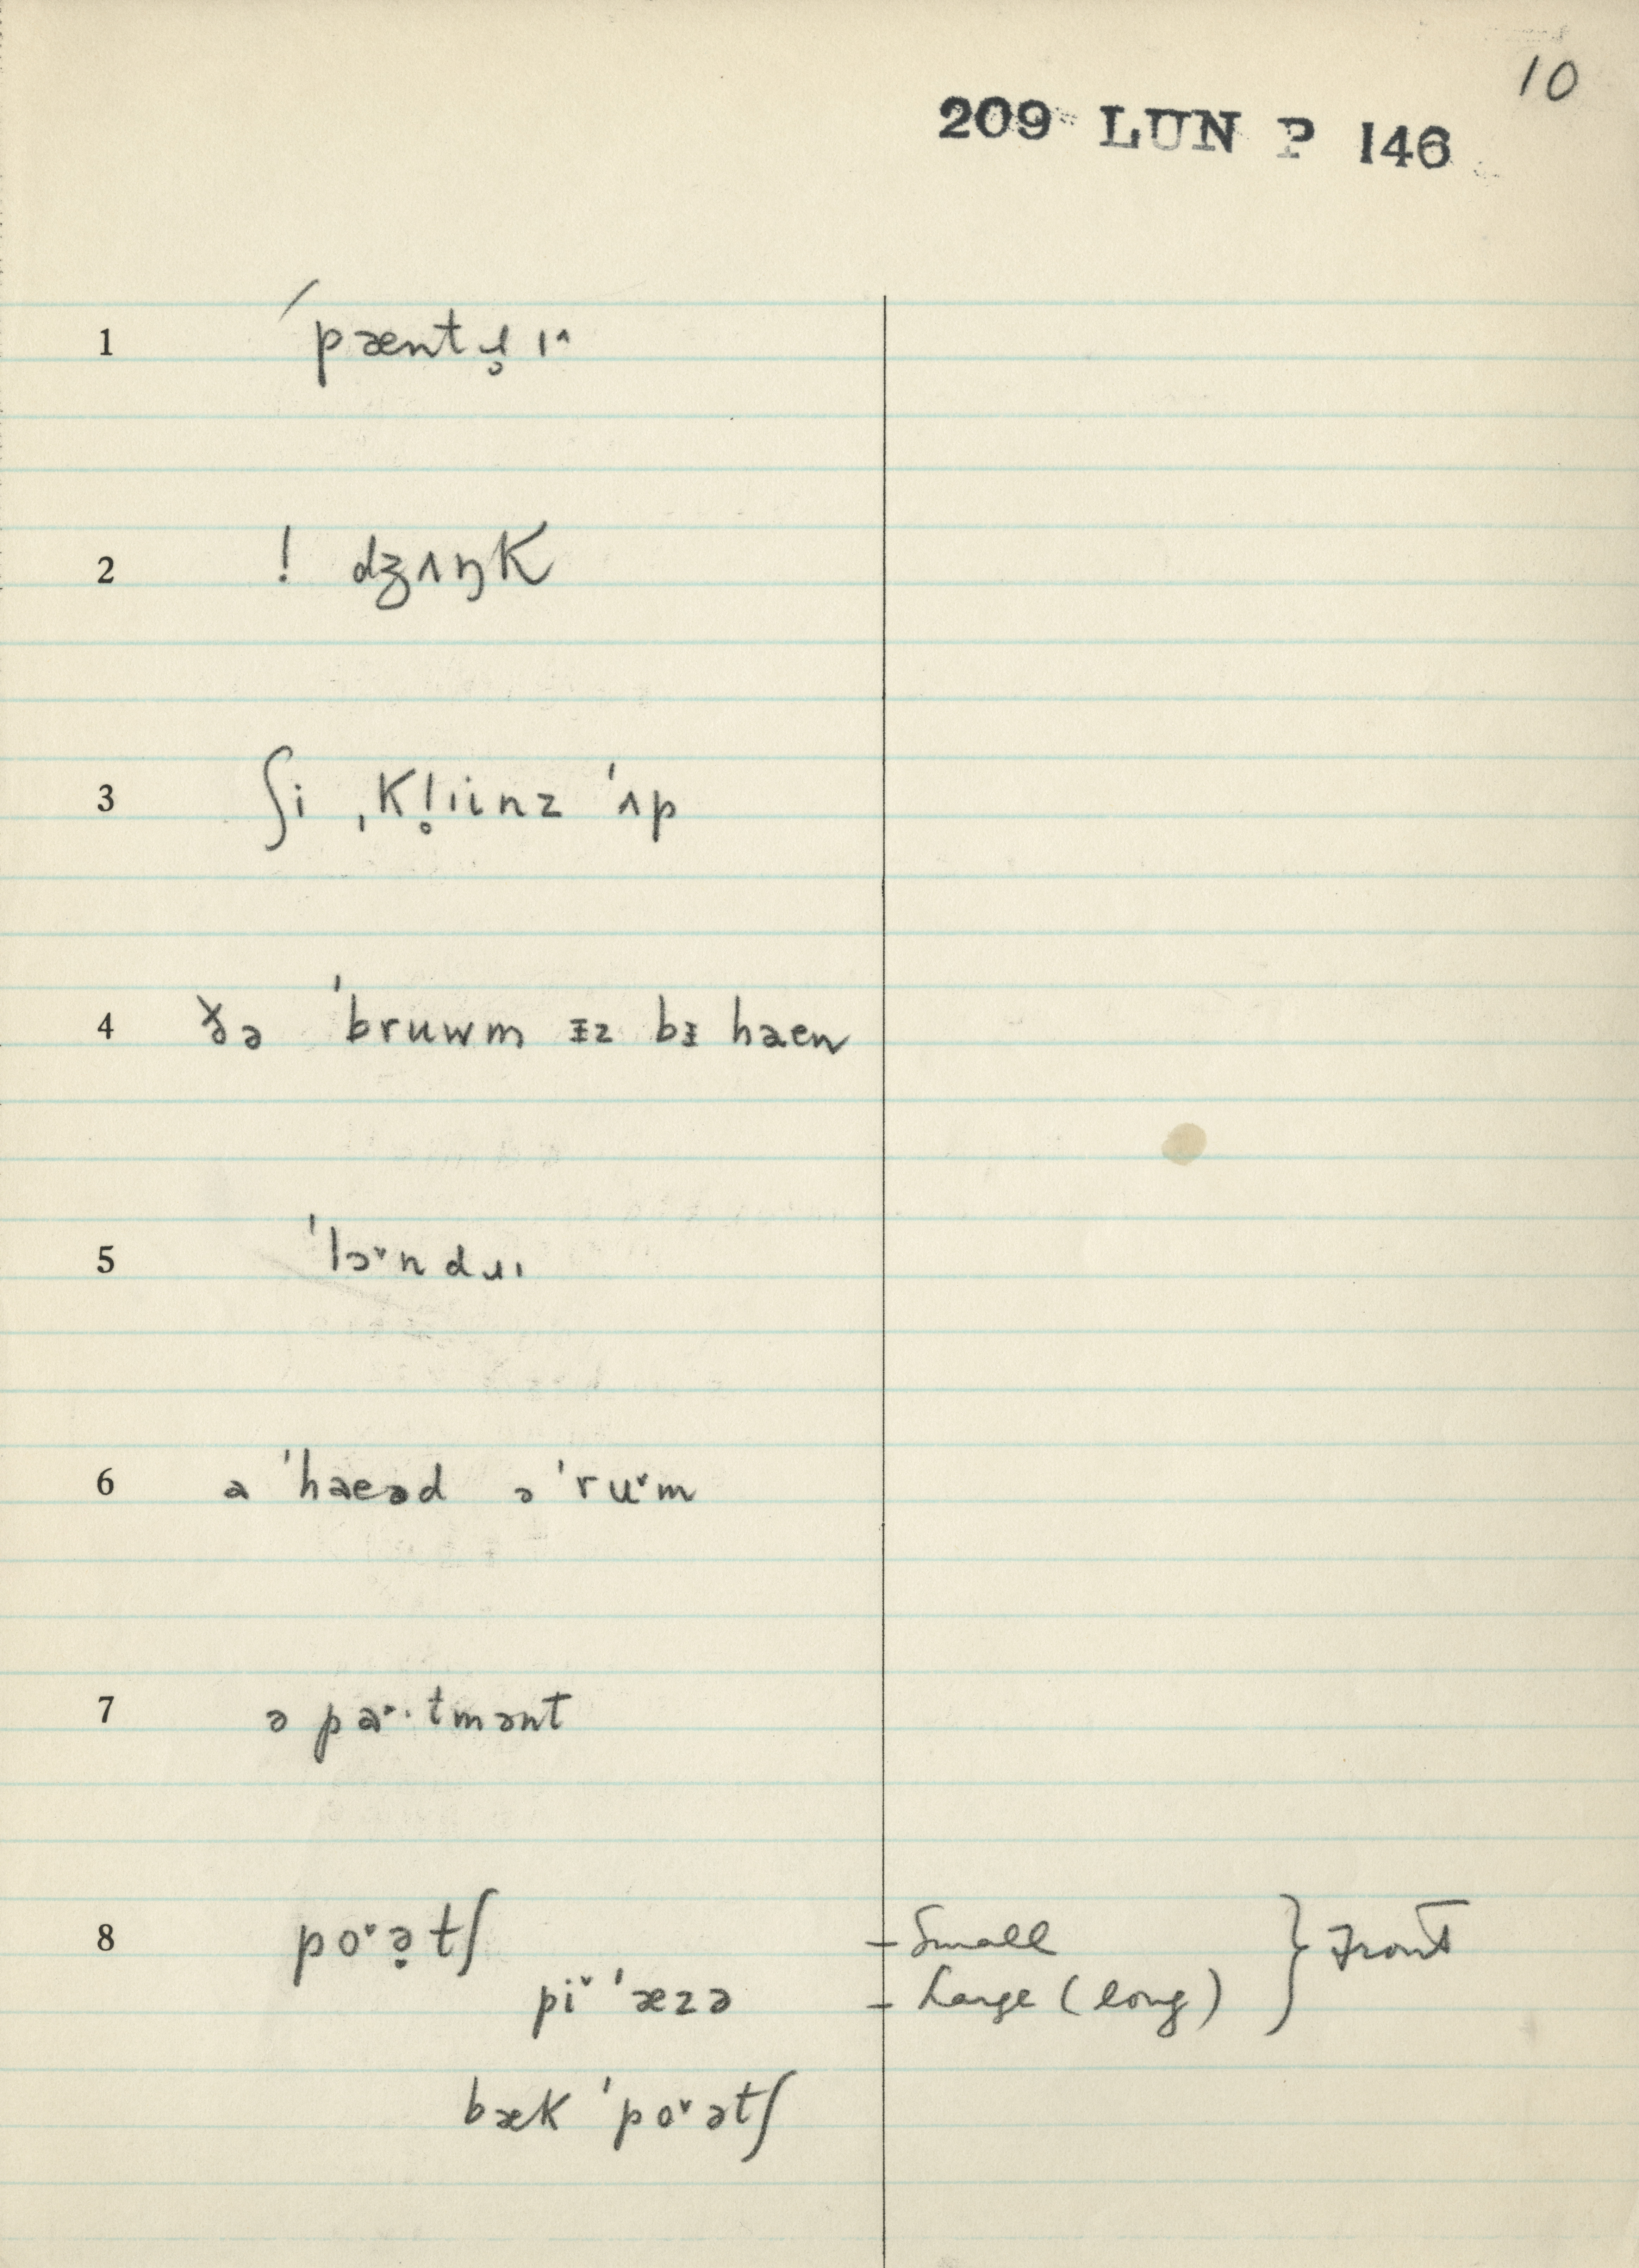 10
209 LUN P 146
1 ˈpæntɹ̥ɪ^
2 ! dʒʌŋK
3 ʃi ˌKl̥iinz ˈʌp
4 ðə ˈbruwm ᵻz bᵻ haen
5 ˈlɔ˅ndɹɪ
6 a ˈhaeəd ə ˈru˅m
7 ə pa˂·tmənt
8 po˅ə̣tʃ – Small } Front
pi˅ ˈæzə – Large (long)
bæK ˈpo˅ətʃ